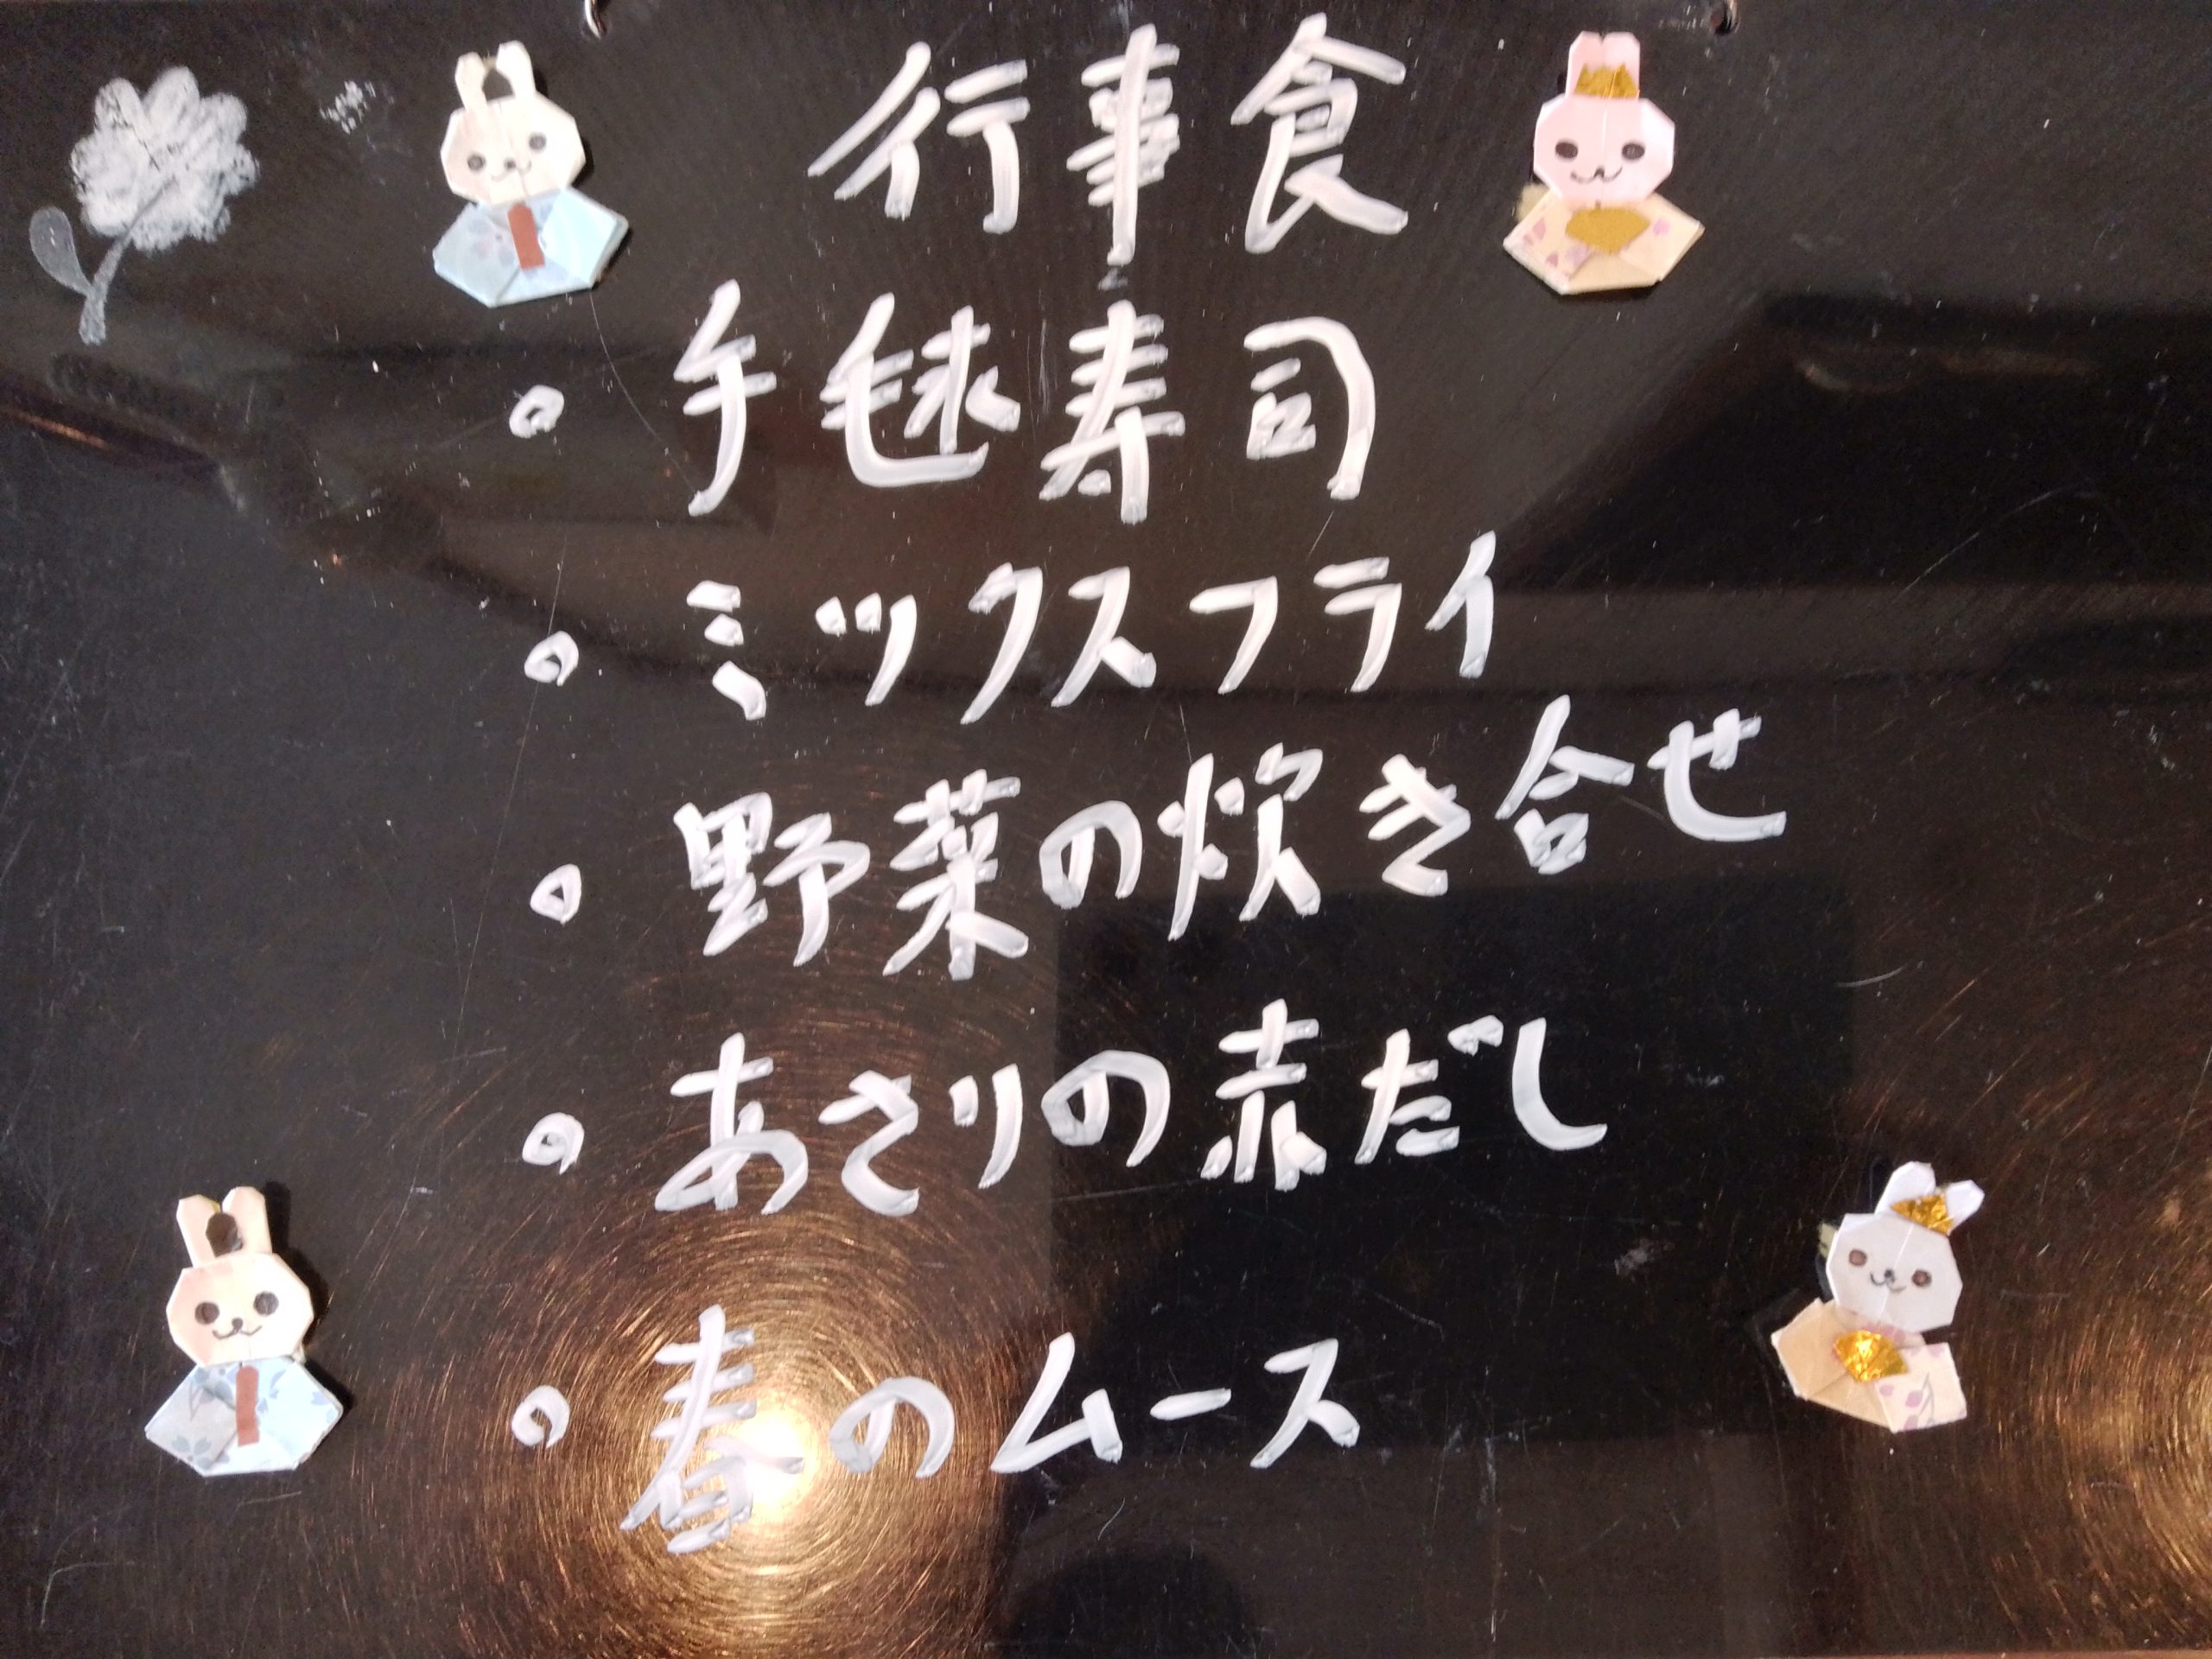 行事食
・手毬寿司
・ミックスフライ
・野菜の炊き合せ
・あさりの赤だし
・春のムース